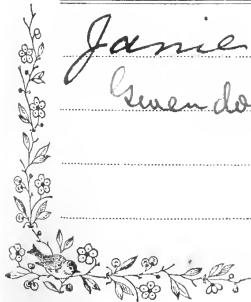 Janie
Gwendo